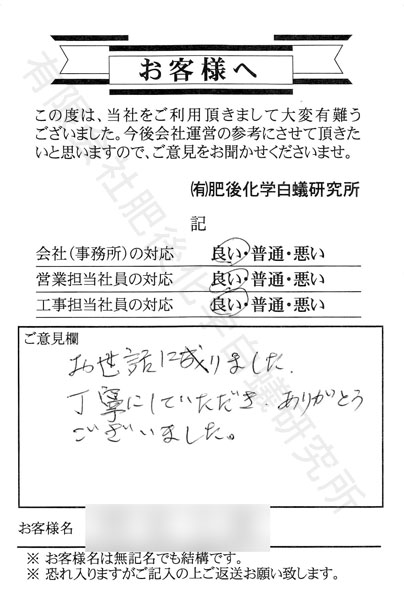 お客様へ
この度は、当社をご利用頂きまして大変有難う
ございました。今後会社運営の参考にさせて頂きた
いと思いますので、ご意見をお聞かせくださいませ。
㈲肥後化学白蟻研究所
記
会社(事務所)の対応 良い・普通・悪い
営業担当社員の対応 良い・普通・悪い
工事担当社員の対応 良い・普通・悪い
ご意見欄
お世話に成りました.
丁寧にしていただき.ありがとう
ございました。
お客様名
※ お客様名は無記名でも結構です。
※ 恐れ入りますがご記入の上ご返送お願い致します。
有限会社肥後化学白蟻研究所